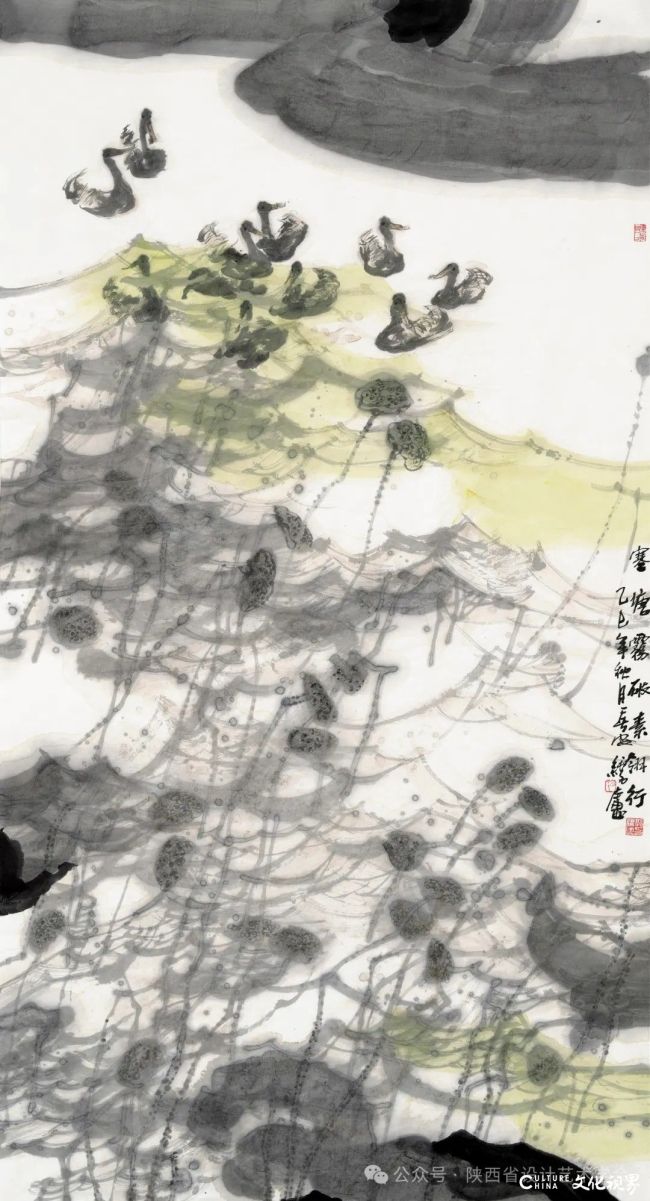 寒塘霧破素翎行
乙巳年秋月長安
公众号·陕西省设计艺术
CULTURE
CHINA 文化视界